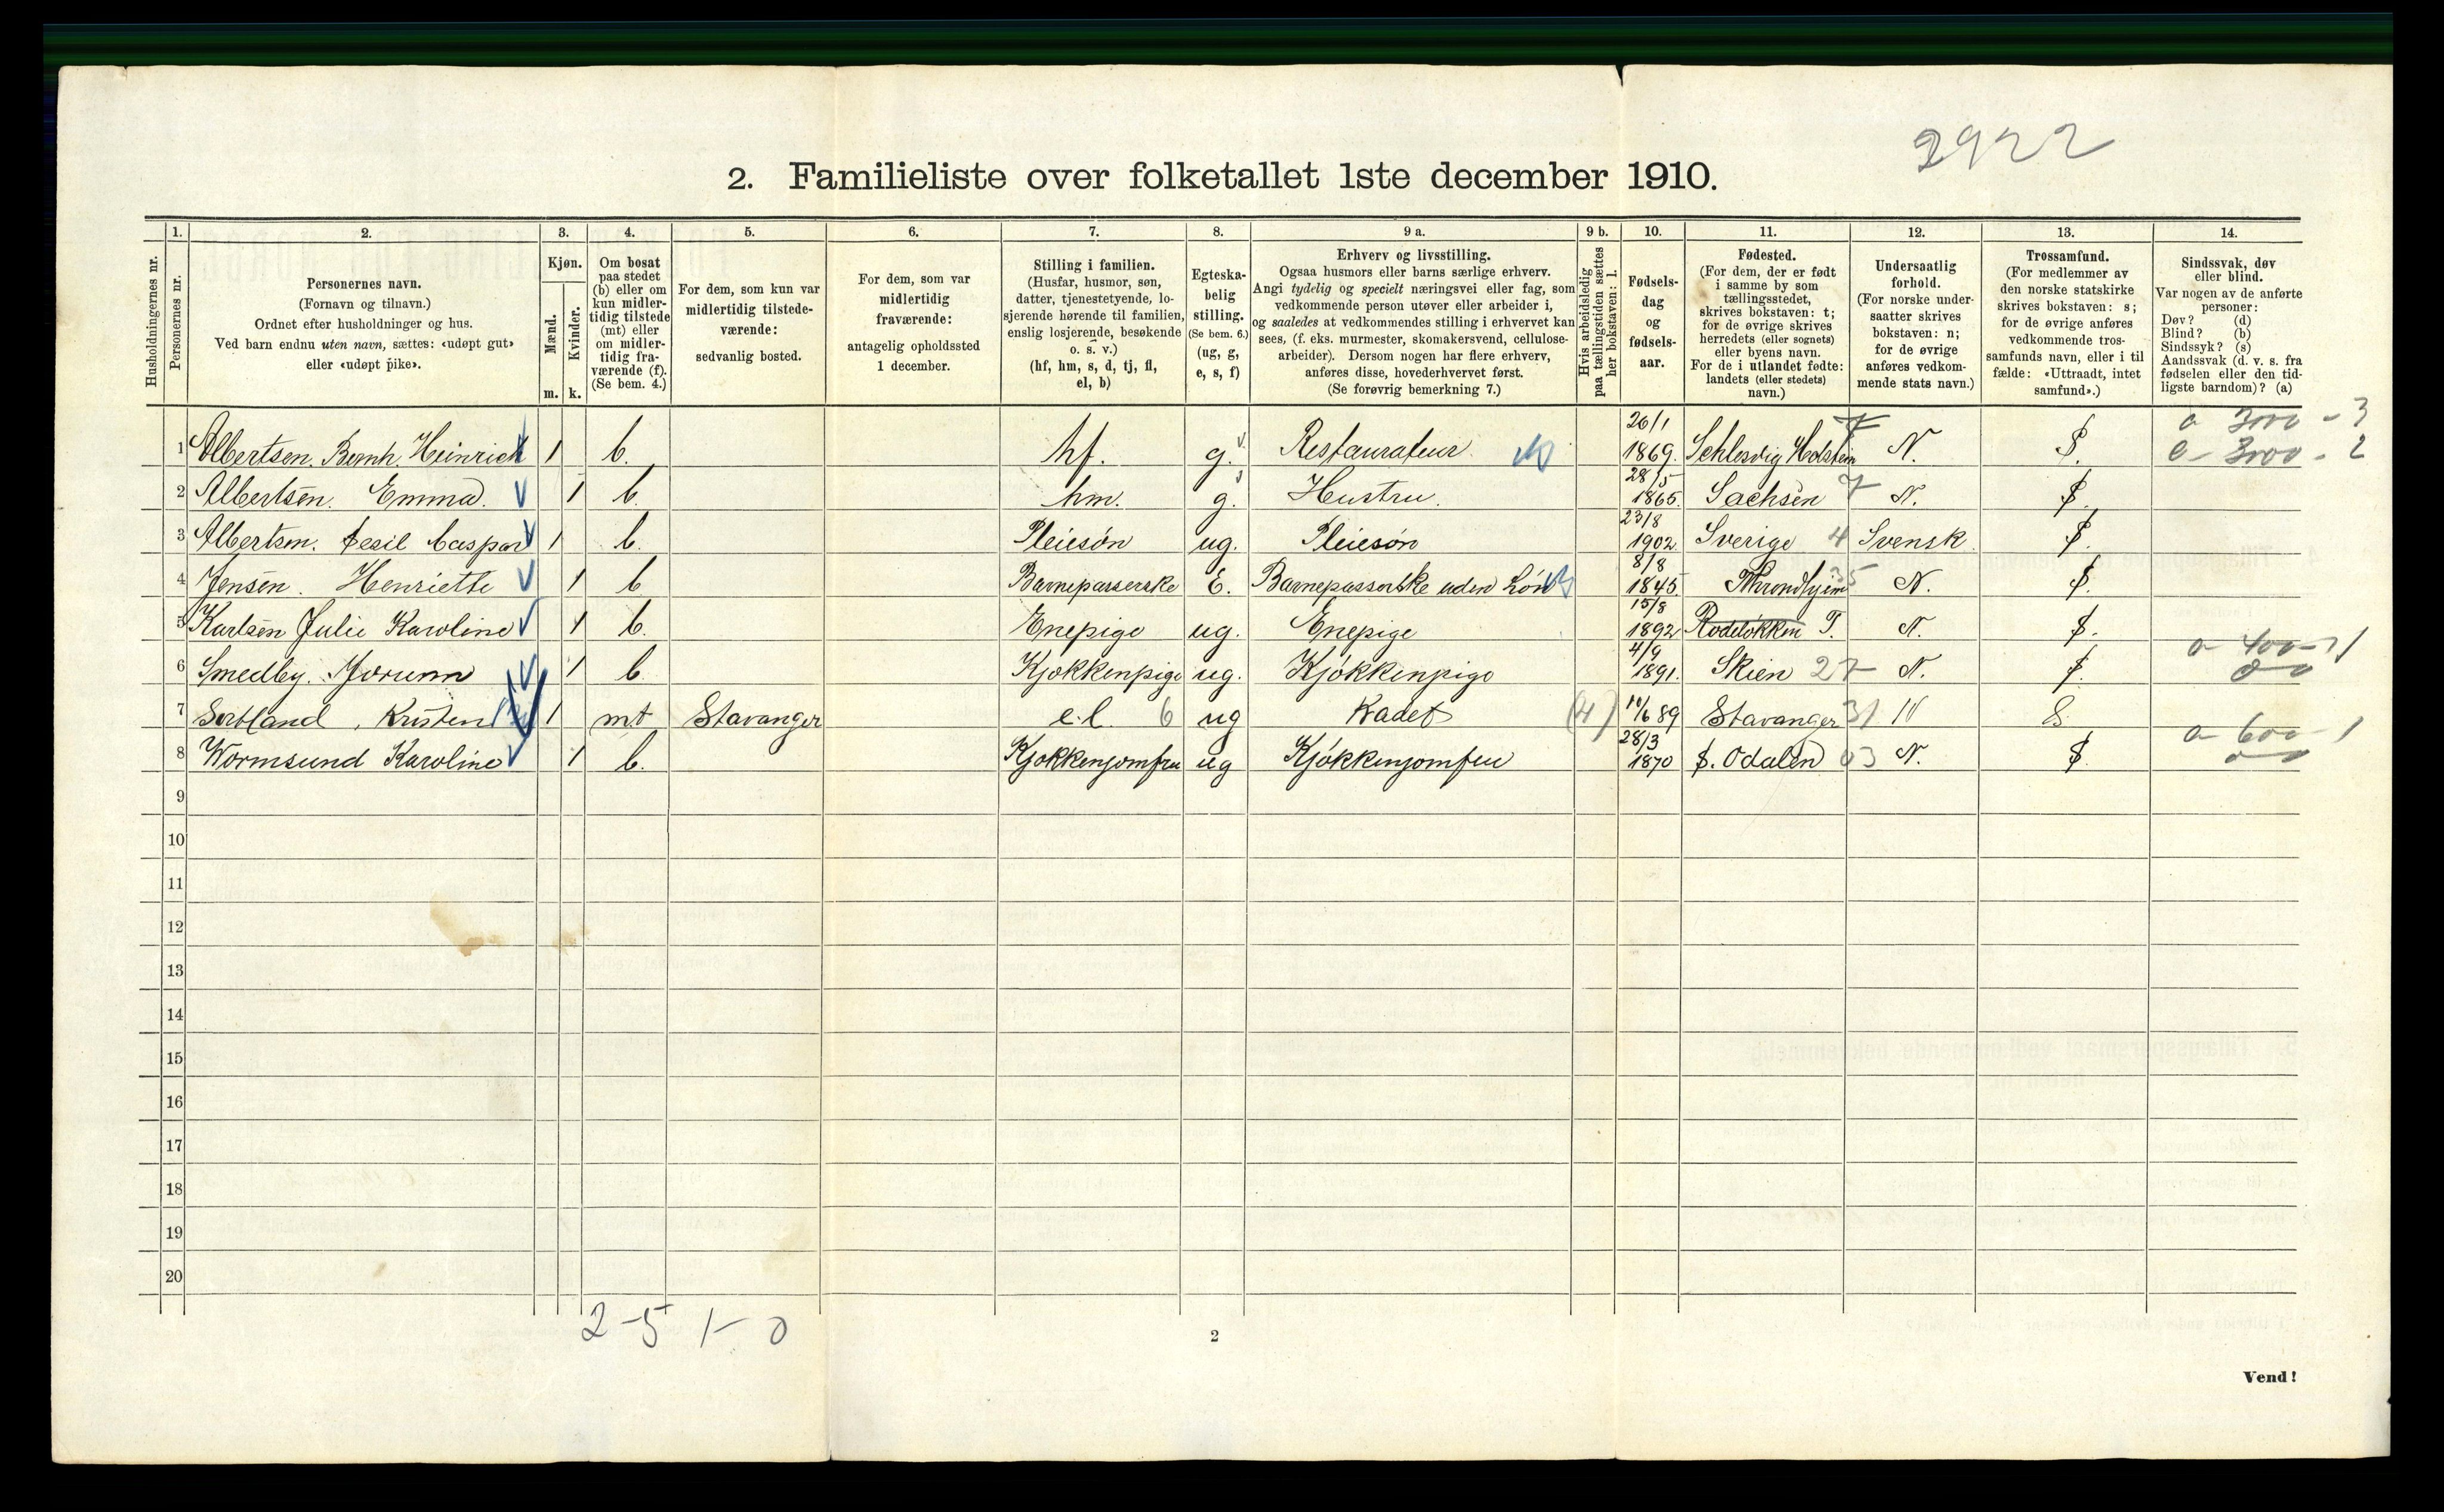 2922
2. Familieliste over folketallet 1ste december 1910.
Husholdningernes nr.
1. Personernes nr.
2. Personernes navn.
(Fornavn og tilnavn.)
Ordnet efter husholdninger og hus.
Ved barn endnu uten navn, sættes: «udøpt gut»
eller «udøpt pike».
3. Kjøn.
Mænd. m.
Kvinder. k.
4. Om bosat
paa stedet
(b) eller om
kun midler-
tidig tilstede
(mt) eller
om midler-
tidig fra-
værende (f).
(Se bem. 4.)
5. For dem, som kun var
midlertidig tilstede-
værende:
sedvanlig bosted.
6. For dem, som var
midlertidig
fraværende:
antagelig opholdssted
1 december.
7. Stilling i familien.
(Husfar, husmor, søn,
datter, tjenestetyende, lo-
sjerende hørende til familien,
enslig losjerende, besøkende
o. s. v.)
(hf, hm, s, d, tj, fl,
el, b)
8. Egteska-
belig
stilling.
(Se bem. 6.)
(ug, g,
e, s, f)
9 a. Erhverv og livsstilling.
Ogsaa husmors eller barns særlige erhverv.
Angi tydelig og specielt næringsvei eller fag, som
vedkommende person utøver eller arbeider i,
og saaledes at vedkommendes stilling i erhvervet kan
sees, (f. eks. murmester, skomakersvend, cellulose-
arbeider). Dersom nogen har flere erhverv,
anføres disse, hovederhvervet først.
(Se forøvrig bemerkning 7.)
9 b. Hvis arbeidsledig
paa tællingstiden sættes
her bokstaven: l.
10. Fødsels-
dag
og
fødsels-
aar.
11. Fødested.
(For dem, der er født
i samme by som
tællingsstedet,
skrives bokstaven: t;
for de øvrige skrives
herredets (eller sognets)
eller byens navn.
For de i utlandet fødte:
landets (eller stedets)
navn.)
12. Undersaatlig
forhold.
(For norske under-
saatter skrives
bokstaven: n;
for de øvrige
anføres vedkom-
mende stats navn.)
13. Trossamfund.
(For medlemmer av
den norske statskirke
skrives bokstaven: s;
for de øvrige anføres
vedkommende tros-
samfunds navn, eller i til
fælde: «Uttraadt, intet
samfund».)
14. Sindssvak, døv
eller blind.
Var nogen av de anførte
personer:
Døv? (d)
Blind? (b)
Sindssyk? (s)
Aandssvak (d. v. s. fra
fødselen eller den tid-
ligste barndom)? (a)
1 Albertsen. Bernh. Heinrich 1 b. hf. g. Restauratør 26/1 1869. Schlesvig Holstein 7 N. S. a 3000 - 3 e - 3000 - 2
2 Albertsen. Emma. 1 b. hm. g. Hustru. 28/5 1865. Sachsen 7 N. S.
3 Albertsen. Cesil Caspar 1 b. Pleiesøn ug. Pleiesøn 23/8 1902. Sverige 4 Svensk S.
4 Jensen. Henriette 1 b Barnepasserske E. Barnepasserske uden Løn 8/8 1845. Throndhjim 35 N. S.
5 Karlsen Julie Karoline 1 b. Enepige ug. Enepige 15/8 1892 Rodeløkken T. N. S.
6 Smedby. Jorunn 1 b Kjøkkenpige ug. Kjøkkenpige 4/9 1891. Skien 27 N. S. a 400 - 1
7 Sørbland, Kristen 1 mt Stavanger e.l. 6 ug Kadet (4) 10/6 89 Stavanger 31 N S.
8 Wormsund Karoline 1 b. Kjøkkenjomfru ug Kjøkkenjomfru 28/3 1870 S. Odalen 03 N. S. a 600 - 1
9
10
11
12
13
14
15
16
17
18
19
20
2-5 1-0
2
Vend!